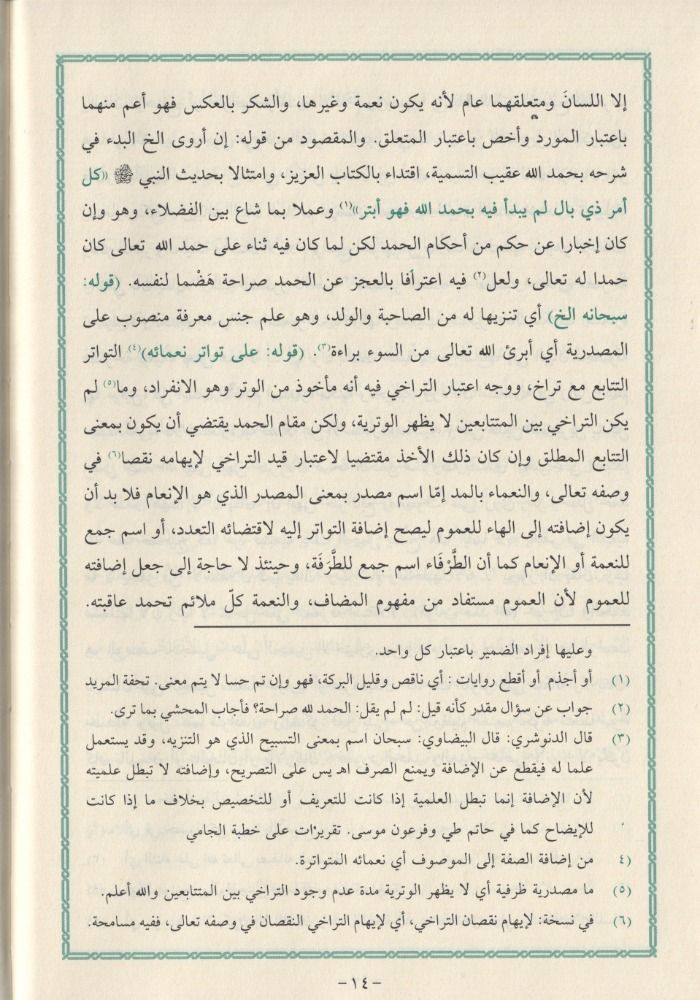 إلا اللسانَ ومتعلقهما عام لأنه يكون نعمة وغيرها، والشكر بالعكس فهو أعم منهما
باعتبار المورد وأخص باعتبار المتعلق. والمقصود من قوله: إن أروى الخ البدء في
شرحه بحمد الله عقيب التسمية، اقتداء بالكتاب العزيز، وامتثالا بحديث النبي ﷺ «كل
أمر ذي بال لم يبدأ فيه بحمد الله فهو أبتر»(١) وعملا بما شاع بين الفضلاء، وهو وإن
كان إخبارا عن حكم من أحكام الحمد لكن لما كان فيه ثناء على حمد الله تعالى كان
حمدا له تعالى، ولعل(٢) فيه اعترافا بالعجز عن الحمد صراحة هَضْما لنفسه. (قوله:
سبحانه الخ) أي تنزيها له من الصاحبة والولد، وهو علم جنس معرفة منصوب على
المصدرية أي أبرئ الله تعالى من السوء براءة(٣). (قوله: على تواتر نعمائه)(٤) التواتر
التتابع مع تراخ، ووجه اعتبار التراخي فيه أنه مأخوذ من الوتر وهو الانفراد، وما(٥) لم
يكن التراخي بين المتتابعين لا يظهر الوترية، ولكن مقام الحمد يقتضي أن يكون بمعنى
التتابع المطلق وإن كان ذلك الأخذ مقتضيا لاعتبار قيد التراخي لإيهامه نقصا(٦) في
وصفه تعالى، والنعماء بالمد إمّا اسم مصدر بمعنى المصدر الذي هو الإنعام فلا بد أن
يكون إضافته إلى الهاء للعموم ليصح إضافة التواتر إليه لاقتضائه التعدد، أو اسم جمع
للنعمة أو الإنعام كما أن الطَّرْفَاء اسم جمع للطَّرَفَة، وحينئذ لا حاجة إلى جعل إضافته
للعموم لأن العموم مستفاد من مفهوم المضاف، والنعمة كلّ ملائم تحمد عاقبته.
وعليها إفراد الضمير باعتبار كل واحد.
(١) أو أجذم أو أقطع روايات : أي ناقص وقليل البركة، فهو وإن تم حسا لا يتم معنى. تحفة المريد
(٢) جواب عن سؤال مقدر كأنه قيل: لم لم يقل: الحمد لله صراحة؟ فأجاب المحشي بما ترى.
(٣) قال الدنوشري: قال البيضاوي: سبحان اسم بمعنى التسبيح الذي هو التنزيه، وقد يستعمل
علما له فيقطع عن الإضافة ويمنع الصرف اهـ يس على التصريح، وإضافته لا تبطل علميته
لأن الإضافة إنما تبطل العلمية إذا كانت للتعريف أو للتخصيص بخلاف ما إذا كانت
للإيضاح كما في حاتم طي وفرعون موسى. تقريرات على خطبة الجامي
(٤) من إضافة الصفة إلى الموصوف أي نعمائه المتواترة.
(٥) ما مصدرية ظرفية أي لا يظهر الوترية مدة عدم وجود التراخي بين المتتابعين والله أعلم.
(٦) في نسخة: لإيهام نقصان التراخي، أي لإيهام التراخي النقصان في وصفه تعالى، ففيه مسامحة.
-١٤-